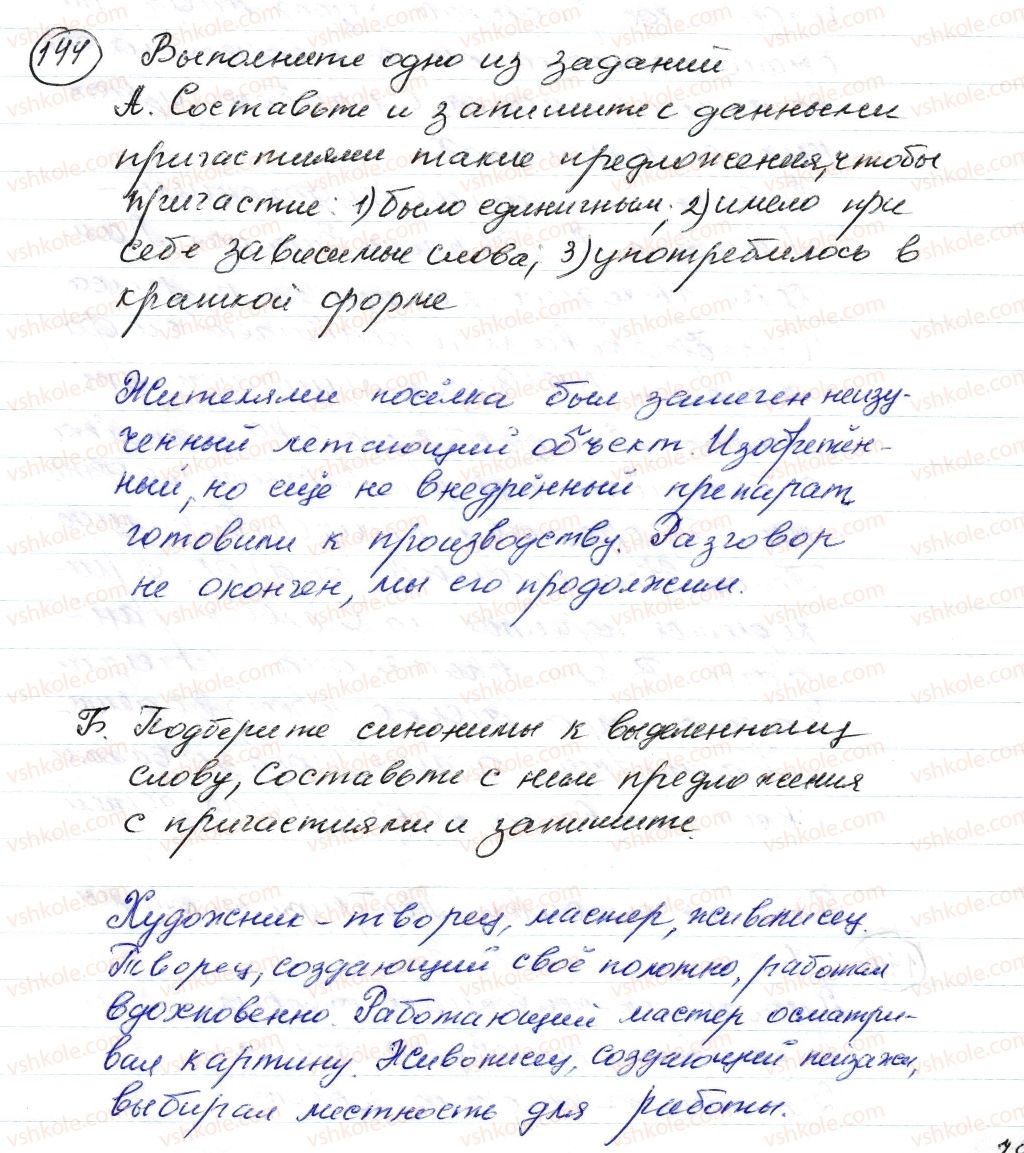 144 Выполните одно из заданий
А. Составьте и запишите с данными
причастиями такие предложения, чтобы
причастие: 1) было единичным; 2) имело при
себе зависимые слова; 3) употребилось в
краткой форме
Жителями посёлка был замечен неизу-
ченный летающий объект. Изобретён-
ный, но ещё не внедрённый препарат
готовили к производству. Разговор
не окончен, мы его продолжим.
Б. Подберите синонимы к выделенному
слову, составьте с ним предложения
с причастиями и запишите.
Художник – творец, мастер, живописец.
Творец, создающий своё полотно, работал
вдохновенно. Работающий мастер осматри-
вал картину. Живописец, создающий пейзажи,
выбирал местность для работы.